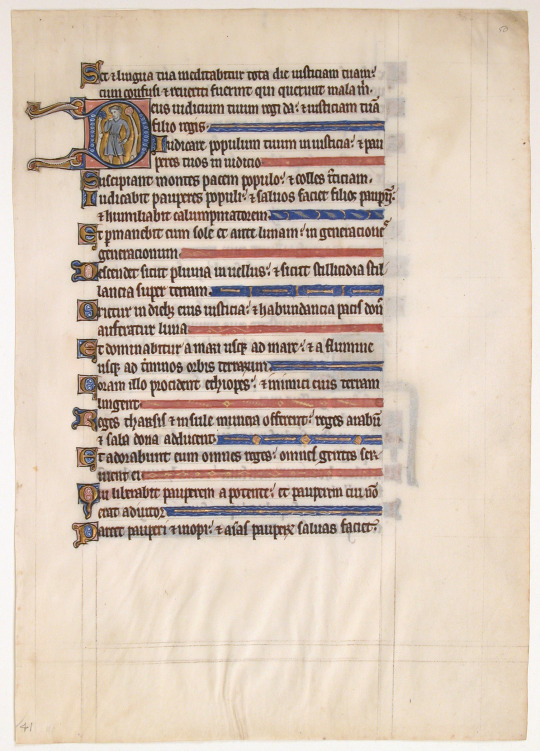 Set & lingua tua meditabitur tota die iusticiam tuam:
cum confusi & reveriti fuerint qui querunt mala m.
Deus iudicium tuum regi da: & iusticiam tuā
filio regis.
Iudicare populum tuum in iusticia: & pau
peres tuos in iudicio
Suscipiant montes pacem populo: & colles iusticiam.
Iudicabit pauperes populi: & salvos faciet filios paupm:
& humiliabit calumpniatorem
Et pmanebit cum sole et ante lunam: in generacione
generacionum.
Descendet sicut pluvia in vellus: & sicut stillicidia stil
lancia super terram.
Orietur in dieb; eius iusticia: & habundancia pacis don
auferatur luna
Et dominabitur a mari usq; ad mare: & a flumine
usq; ad tminos orbis terrarum
Coram illo procident ethiopes: & inimici eius terram
lingent.
Reges tharsis & insule munera offerent: reges arabū
& saba dona adducent.
Et adorabunt eum omnes reges: omnes gentes ser
vient ei
Quia liberabit pauperem a potente: et pauperem cui nō
erat adiutor
Parcet pauperi & inopi: & aīas paupex salvas faciet:
41